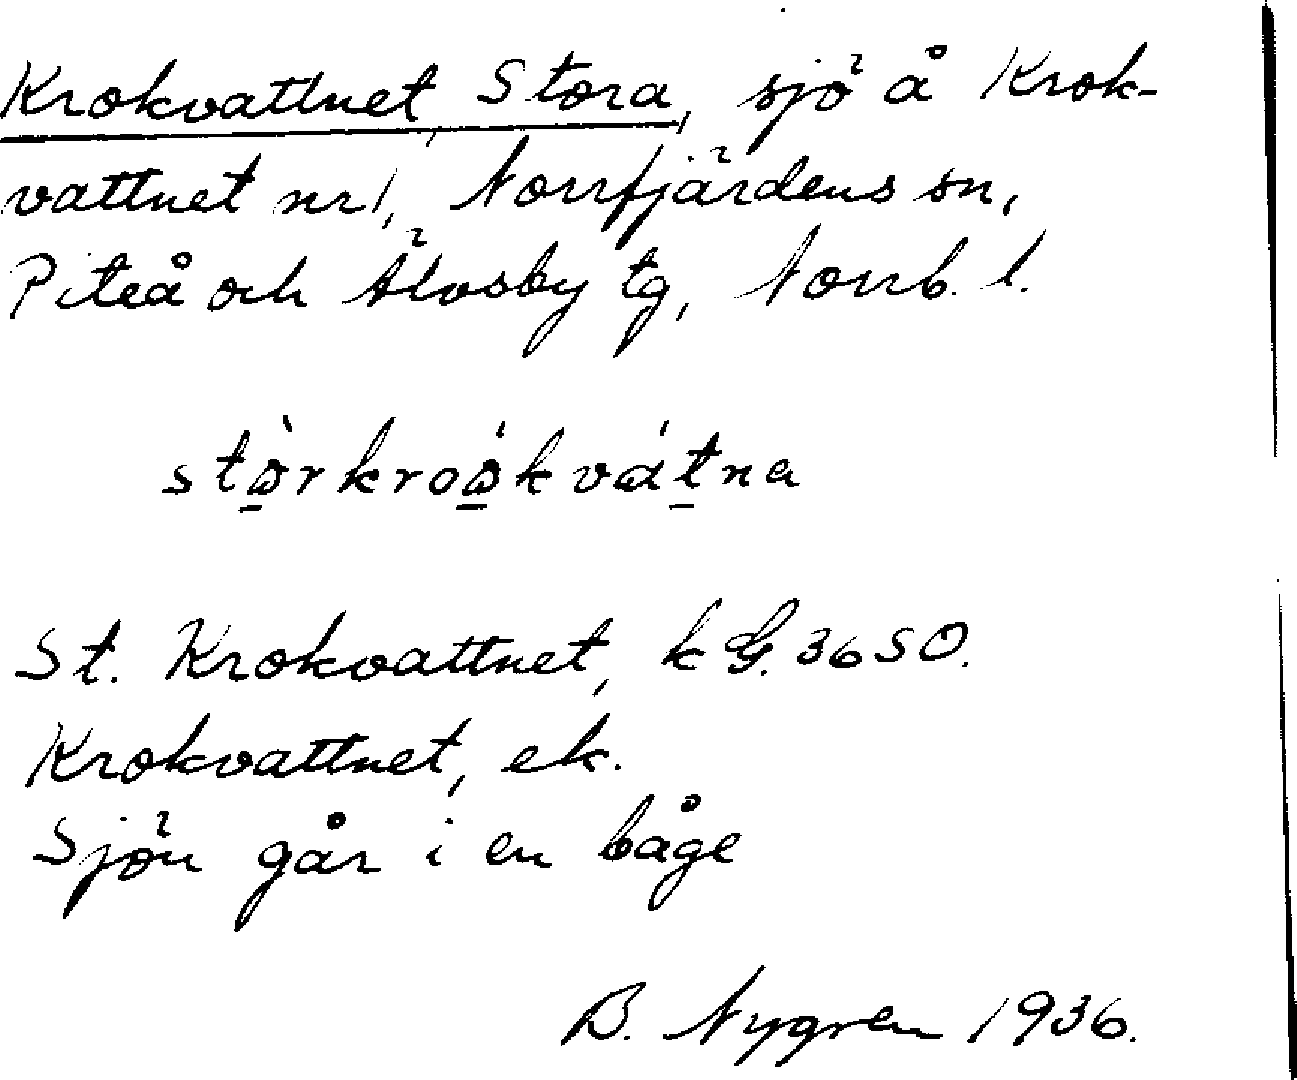 Krokvattnet, Stora, sjö å Krok-
vattnet nr 1, Norrfjärdens sn,
Piteå och Älvsby tg, Norrb. l.
stò̱rkroó̱kváṯna
St. Krokvattnet, kG. 36 SO.
Krokvattnet, ek.
Sjön går i en båge
B. Nygren 1936.